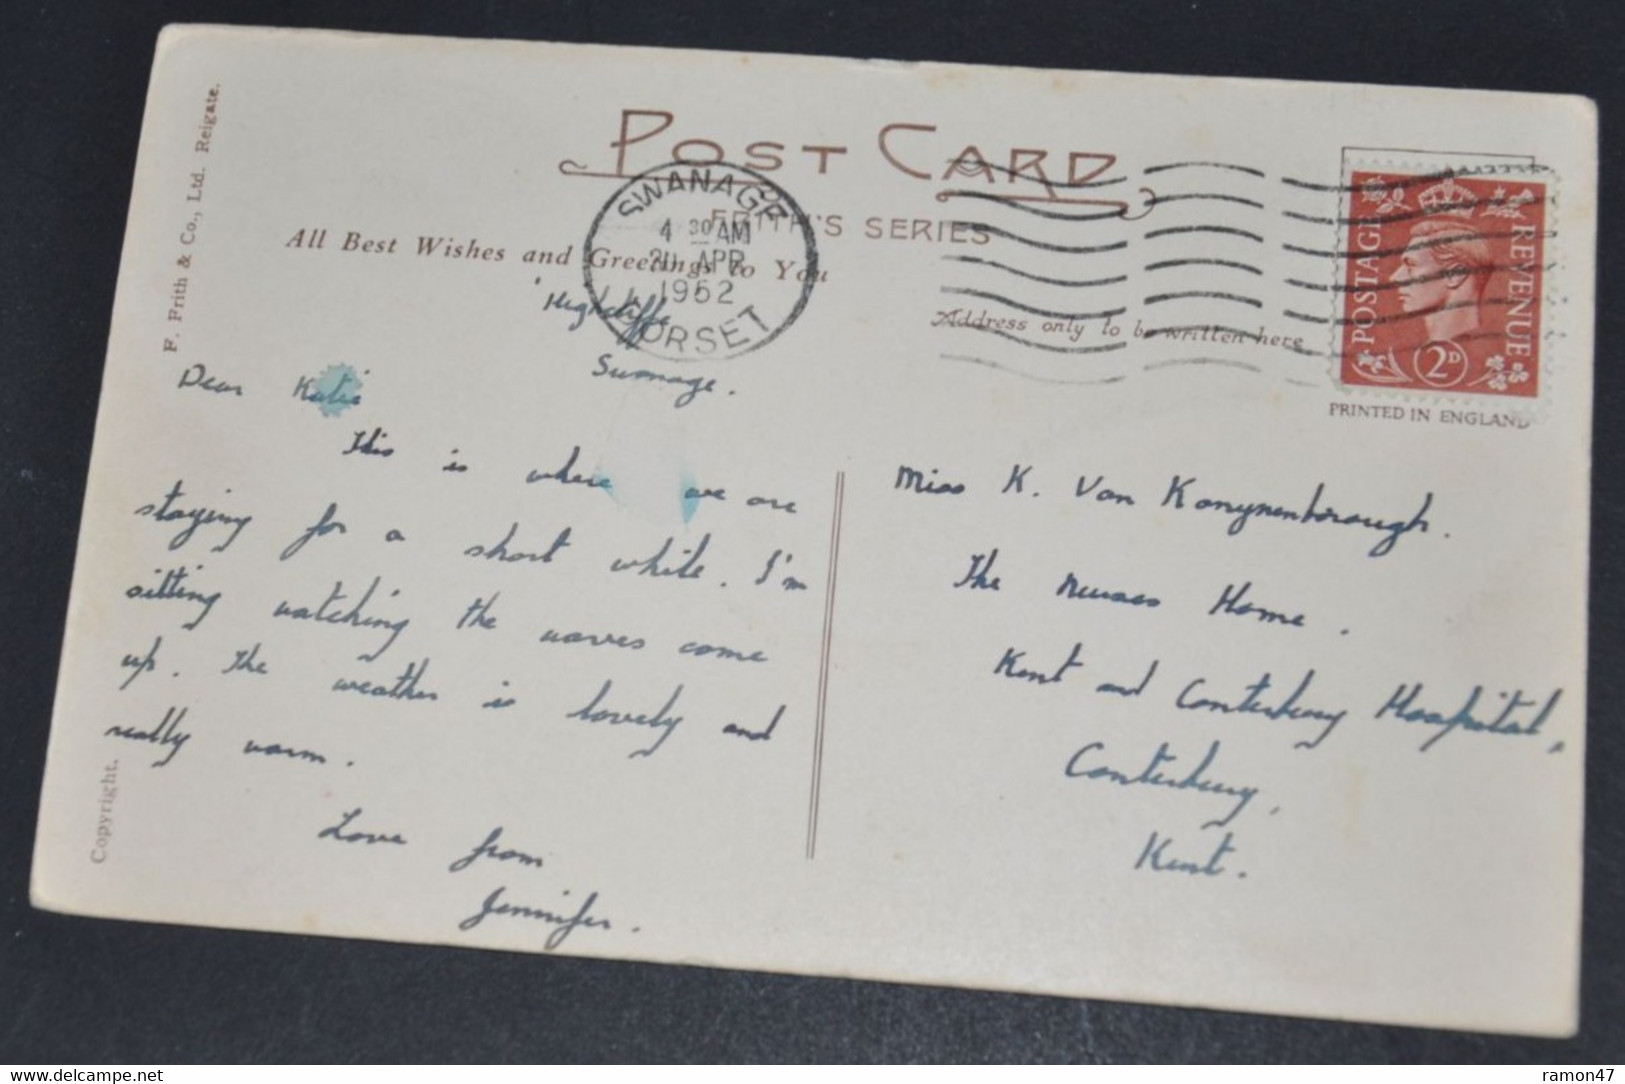 F. Frith & Co., Ltd. Reigate.
POST CARD
FRITH'S SERIES
All Best Wishes and Greetings to You
SWANAGE
4 30 AM
APR
1952
DORSET
Address only to be written here
POSTAGE REVENUE
2D
PRINTED IN ENGLAND
'Highcliffe
Swanage.
Dear Katie
This is where we are
staying for a short while. I'm
sitting watching the waves come
up. The weather is lovely and
really warm.
Love from
Jennifer.
Miss K. Van Konynenborough.
The Nurses Home.
Kent and Canterbury Hospital,
Canterbury,
Kent.
Copyright.
delcampe.net
ramon47